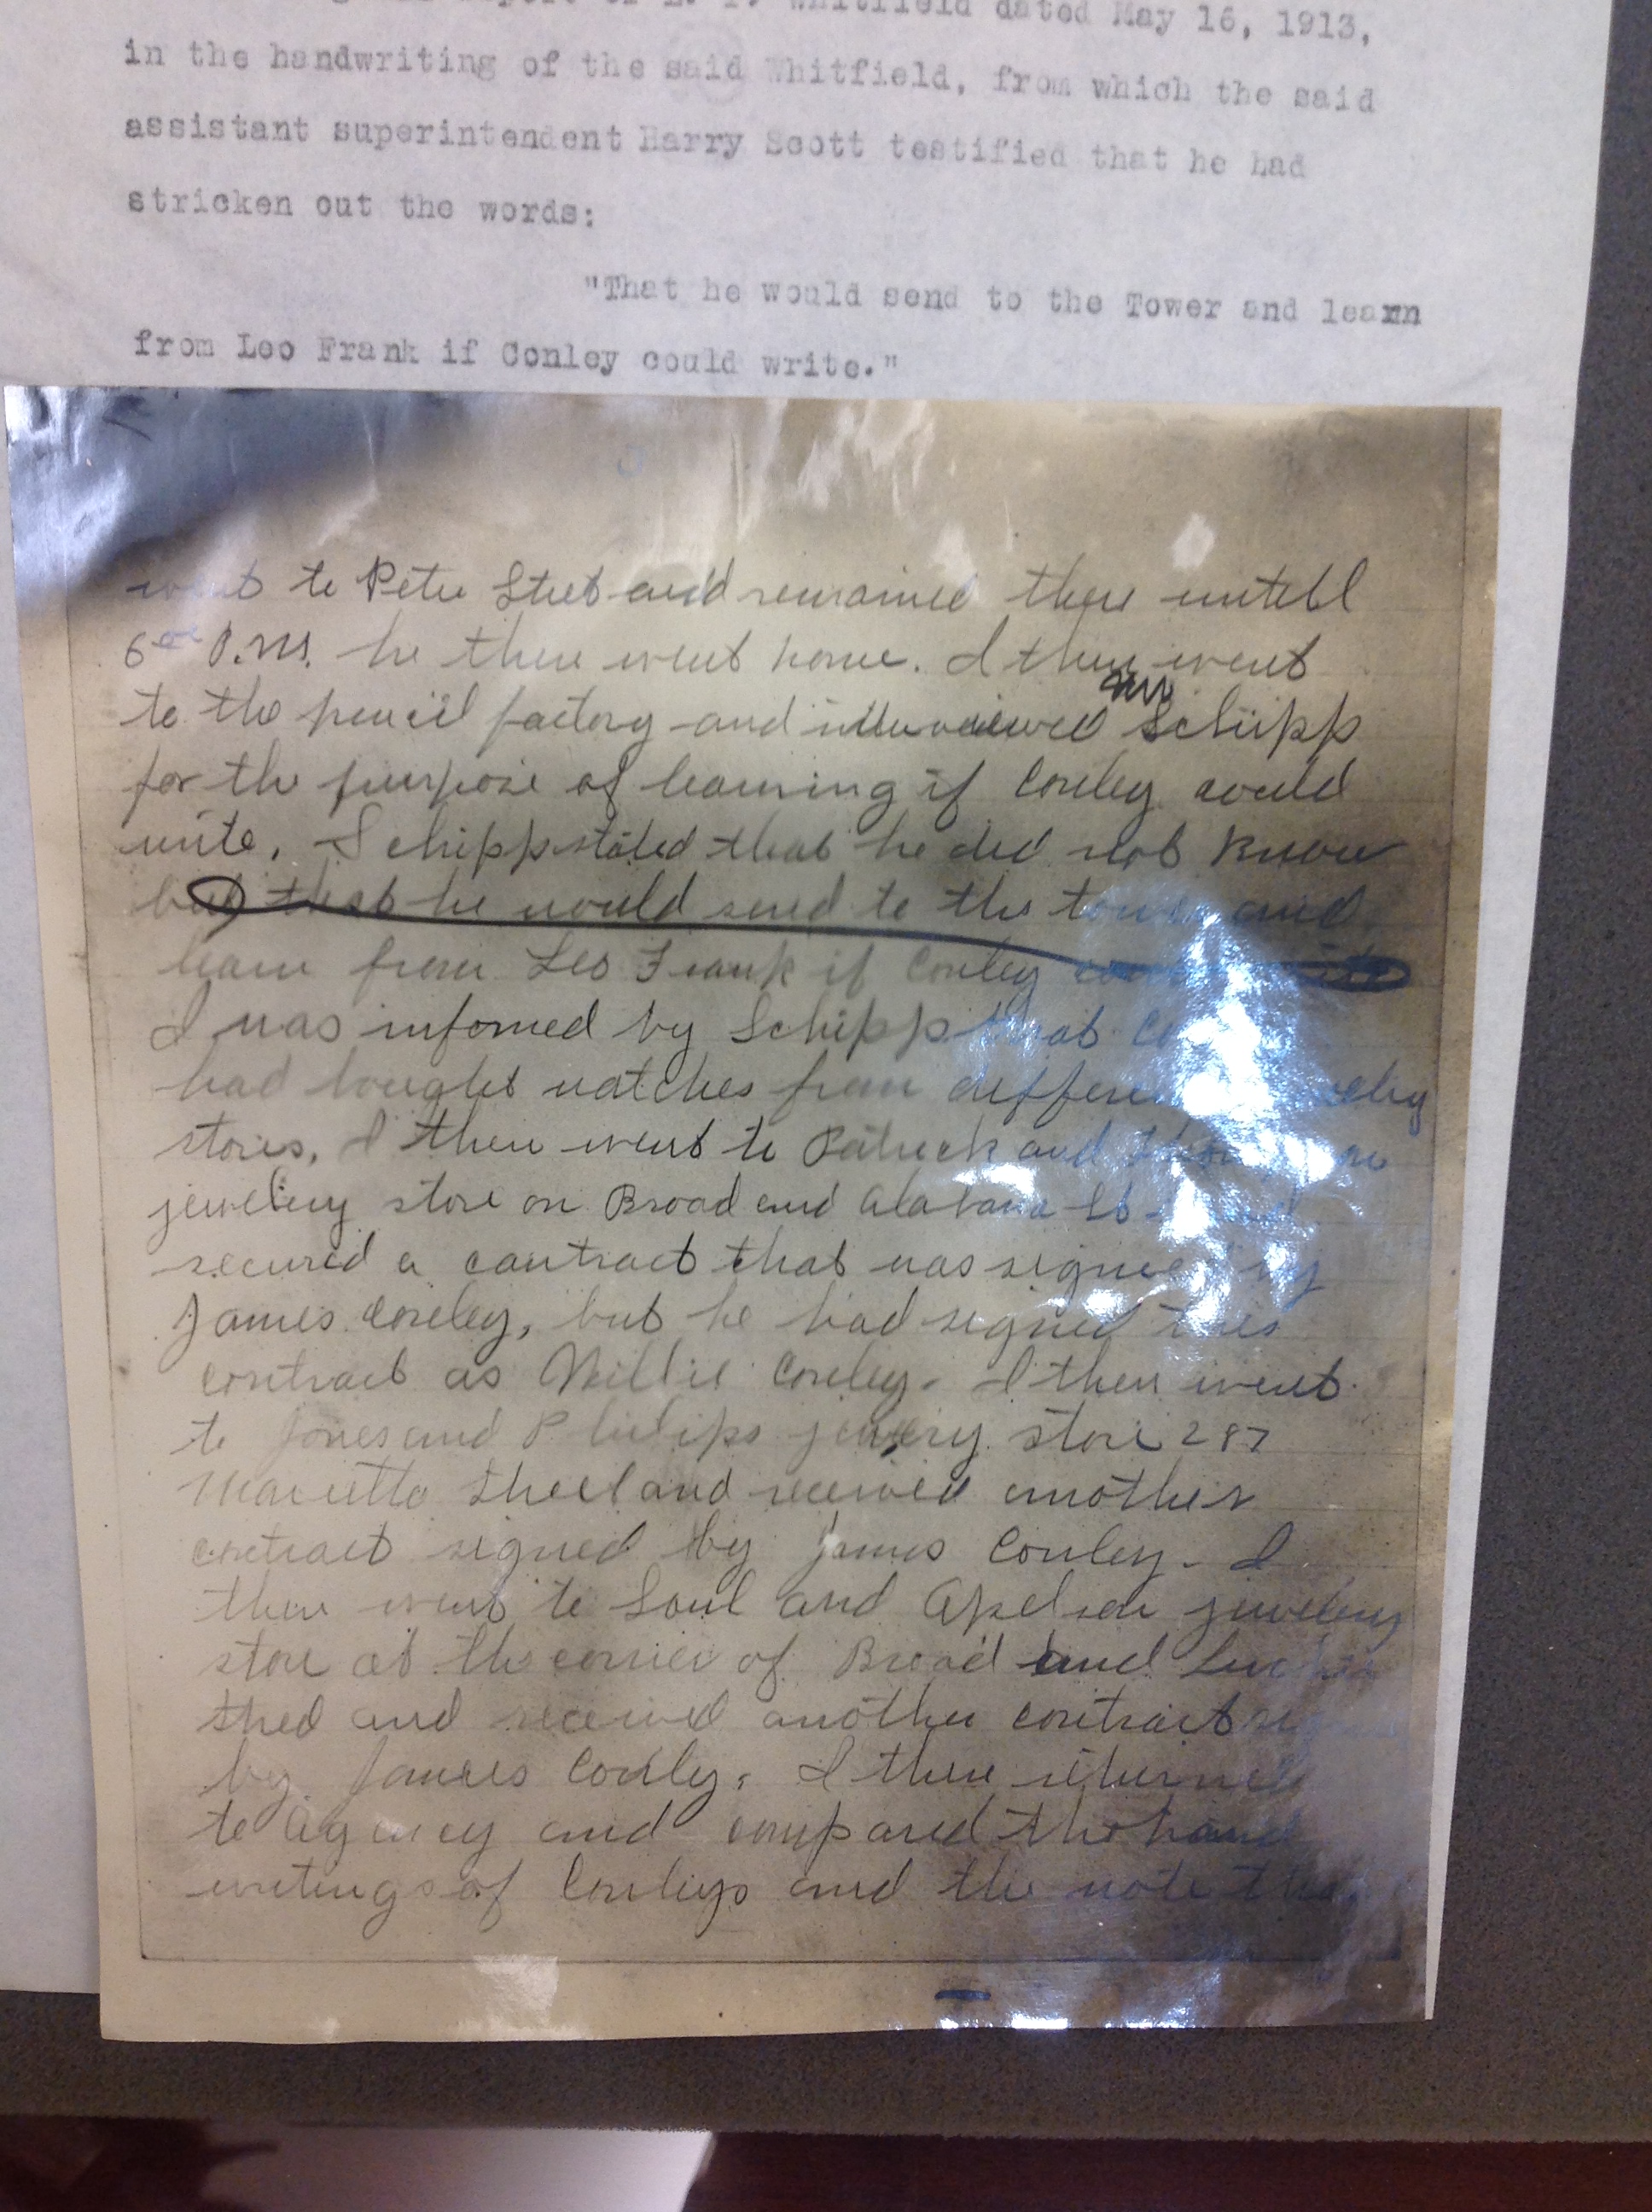 report of L. P. Whitfield dated May 16, 1913,
in the handwriting of the said Whitfield, from which the said
assistant superintendent Harry Scott testified that he had
stricken out the words:
"That he would send to the Tower and learn
from Leo Frank if Conley could write."
went to Peter Street and remained there untill
6 P.M. he then went home. I then went
to the pencil factory and interviewed Schipp
for the purpose of learning if Conley could
write. Schipp stated that he did not know
but that he would send to the tower and
learn from Leo Frank if Conley
I was infomed by Schipp that
had bought watches from
stores. I then went to Patrick and
jewelery store on Broad and Alabama
secured a contract that was signed by
James Conley, but he had signed this
contract as Willie Conley. I then went
to Jones and Philips store 287
Marietta Street and received another
contract signed by James Conley. I
then went to Saul and Apelson jewelery
store at the corner of Broad and
and received another contract
by James Conley. I then returned
to agency and compared the hand
writings of Conleys and the note